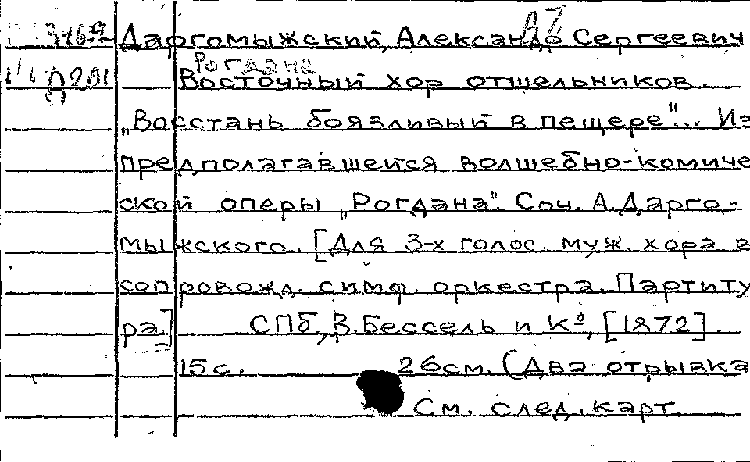 Даргомыжский, Александр Сергеевич
Рогдана
Восточный хор отшельников.
„Восстань боязливый в пещере"... Из
предполагавшейся волшебно-комиче
ской оперы „Рогдана". Соч. А. Дарго-
мыжского. [Для 3-х голос. муж. хора в
сопровожд. симф. оркестра. Партиту
ра.] СПб, В. Бессель и Кº, [1872].
15 с. 26 см. (Два отрывка
См. след. карт.